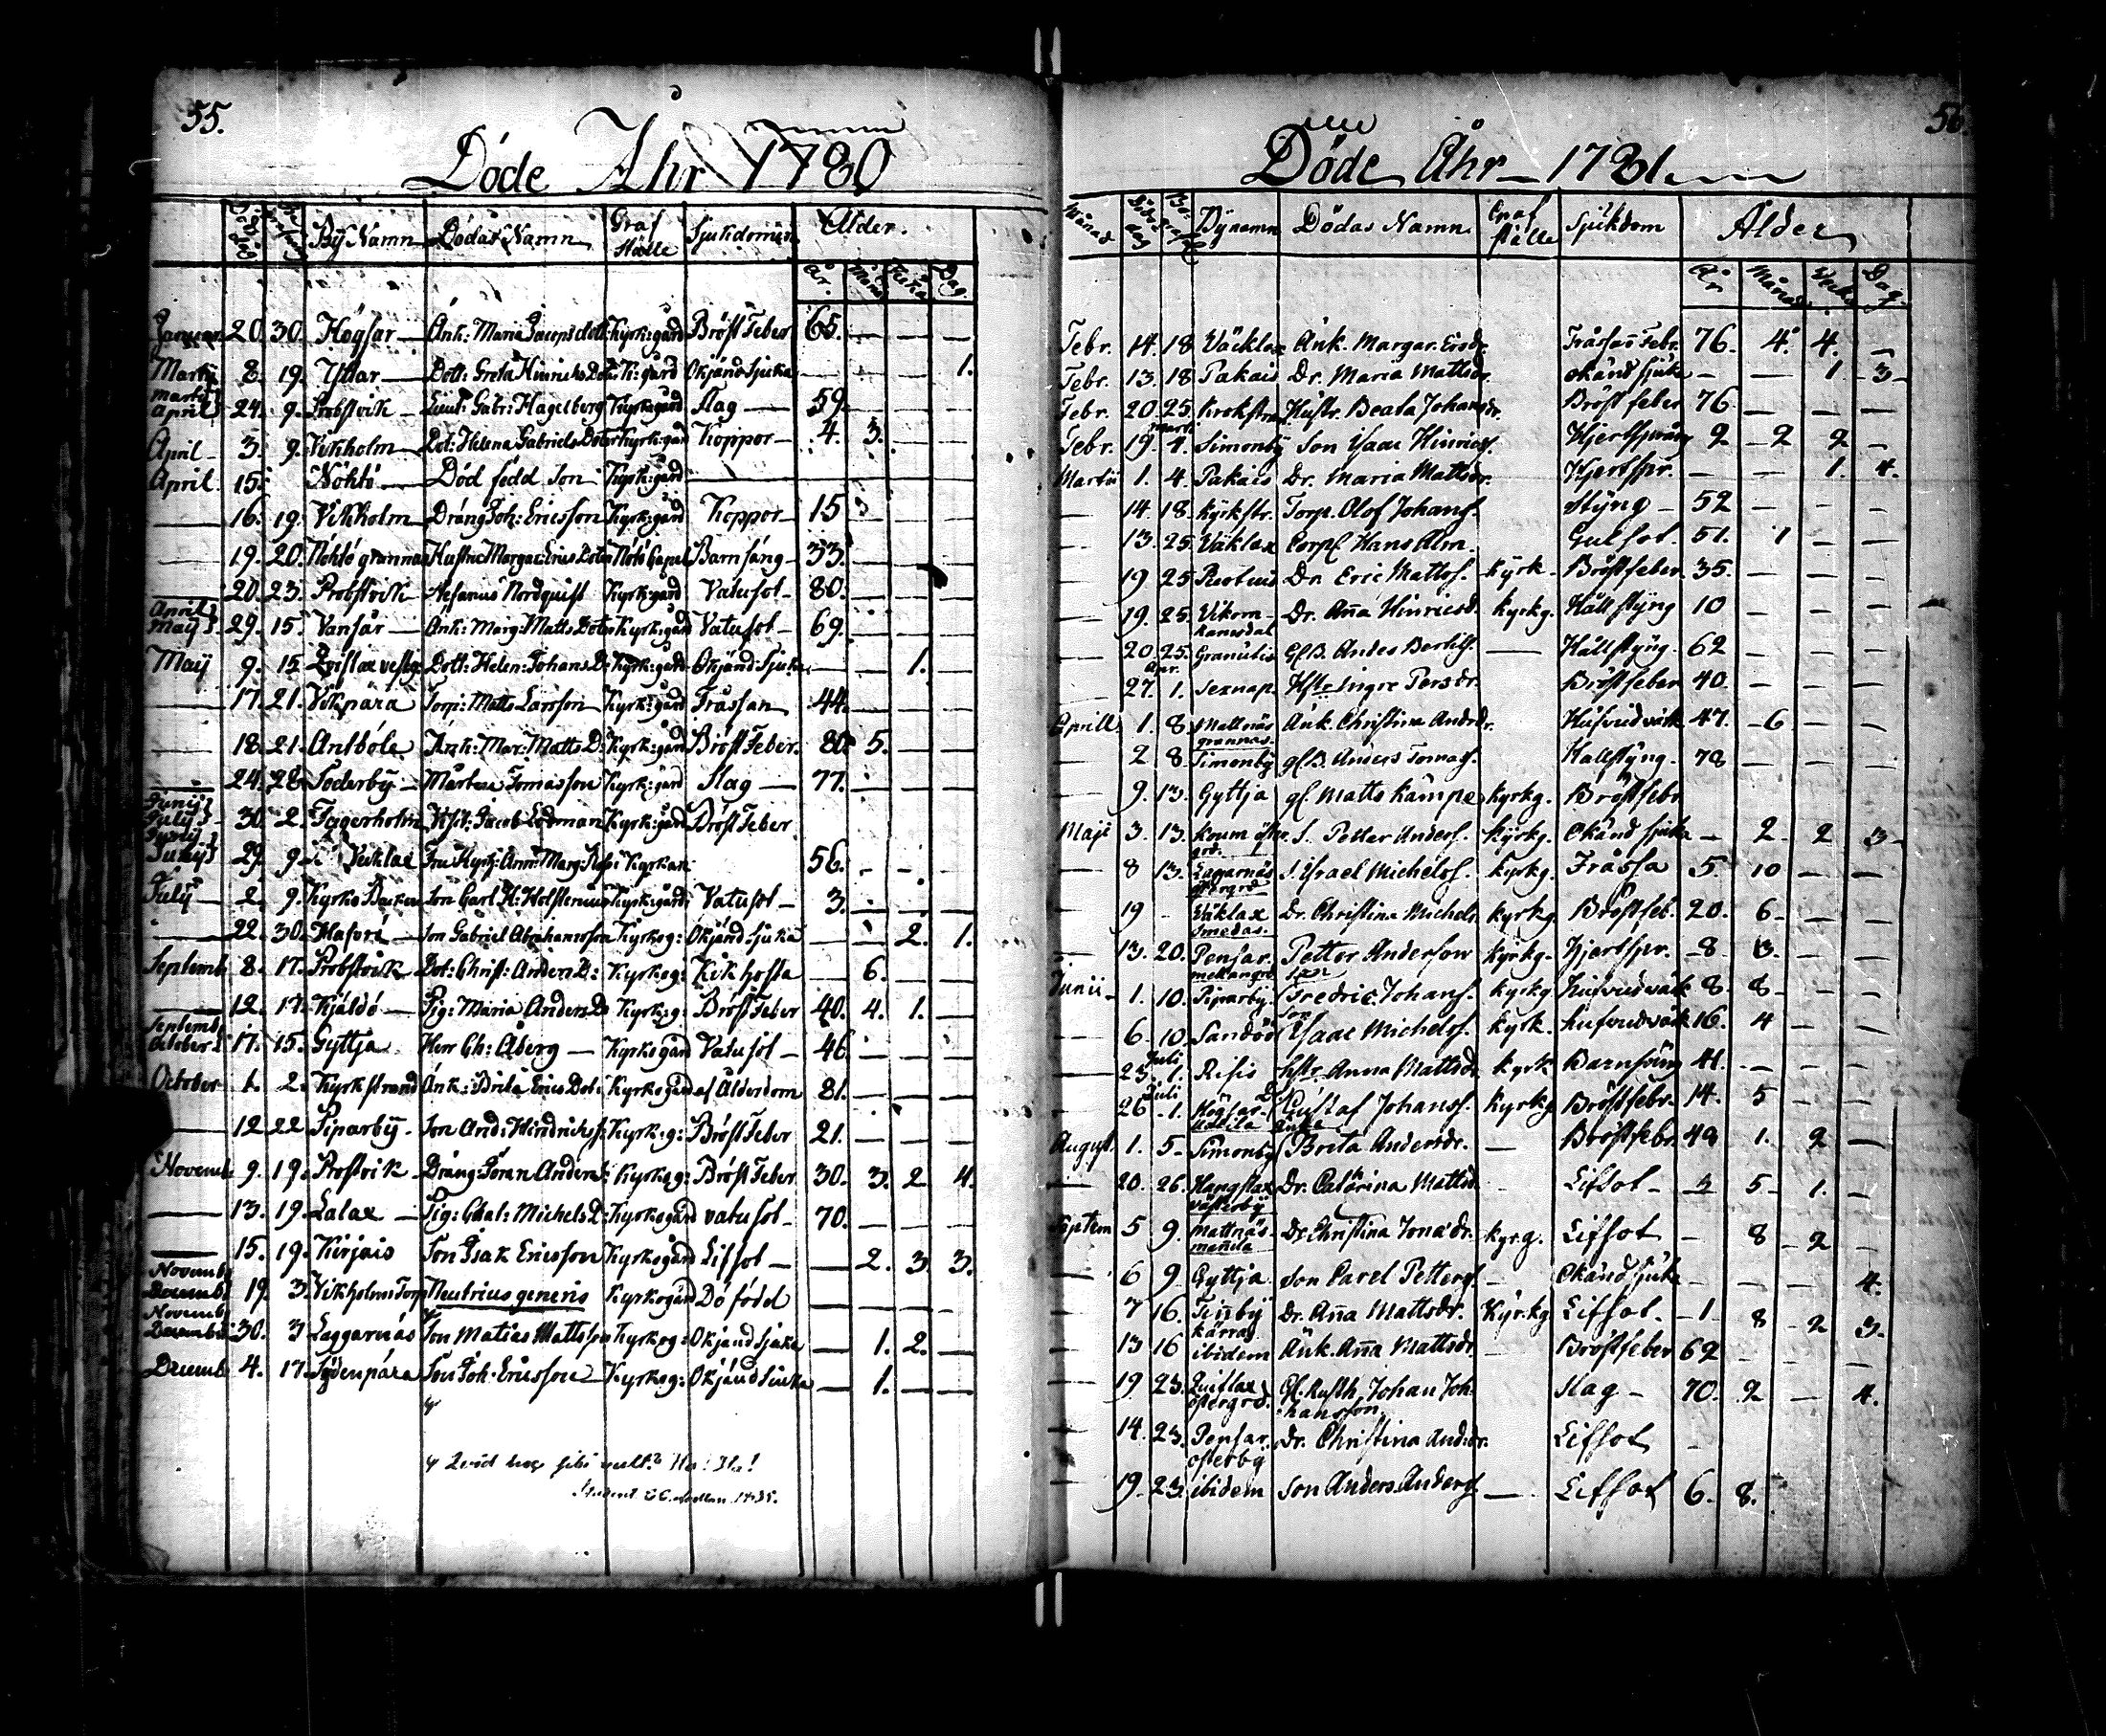 55.
Döde Åhr 1780
By Namn Dödas Namn Graf Ställe Sjukdomar Ålder.
År. Mån. Veka Dag.
Januar 20. 30. Högsar Änk: Maria Jacopsdott: Kyrk:gård Bröst Feber 65. — — —
Martij 8. 19. Yttar Dott: Greta Hinrichs Dot: K:gård Okjänd Sjuka — — — 1.
Martij April 24. 9. Probstvik Lieut: Gabr: Hagelberg Kyrk:gård Slag 59. — — —
April 3. 9. Vikholm Dot: Helena Gabriels Doter Kyrk:gård Koppor 4. 3. — —
April 15. Nöhtö Död född Son Kyrk:gård
— 16. 19. Vikholm Dräng Joh: Ericsson Kyrk:gård Koppor 15 — — —
— 19. 20. Nöhtö grannas Hustru Margar: Erics Doter Nötö Capel Barnsäng 33. — — —
— 20. 23. Probstvik Nordquist Kyrk:gård Vatusot 80. — — —
April May 29. 15. Vansår Änk: Marg: Matts Doter Kyrk:gård Vatusot 69. — — —
Maij 9. 15 Qvistlax vestg Dott: Helen: Johans D: Kyrk:gård Okjänd: Sjuka — — 1. —
— 17. 21. Vikpära Torp: Matts Larsson Kyrk:gård Fråssan 44. — — —
— 18. 21. Antböle Änk: Mar: Matts D: Kyrk:gård Bröst Feber. 80. 5. — —
— 24. 28 Söderby Mårten Tomasson Kyrk:gård Slag 77. — — —
Junij July 30. 2. Fagerholm Jacob Kyrk:gård Bröst Feber
Junij 29. 9. Vecklax Fru Anna: Marg: 56. — — —
July 2. 9. Kyrko Backen Son Carl H: Holstenius Kyrk:gård Vatusot 3. — — —
— 22. 30. Son Gabriel Abrahamsson Kyrkog: Okjänd Sjuka — — 2. 1.
Septemb 8. 17. Probstvik Dot: Christ: Anders D: Kyrkog: Kikhosta — 6. — —
— 12. 17. Kjäldö Pig: Maria Anders D Kyrkog Bröst Feber 40. 4. 1. —
Septemb October 17. 15. Gyttja Herr Ch: Åberg Kyrkogård Vatusot 46. — — —
October 1. 2. Kyrkstrand Änk: Brita Erics Dot: Kyrkogård af Ålderdom 81. — — —
— 12 22 Piparby Son And: Hindrichss: Kyrk:g: Bröst Feber 21. — — —
Novemb 9. 19. Prostvik Dräng Jöran Anders: Kyrkog: Bröst Feber 30. 3. 2 4.
— 13. 19. Lalax Pig: Chal: Michels D: Kyrkogård vatusot 70. — — —
— 15. 19. Kirjais Son Isak Ericsson Kyrkogård Lifsot — 2. 3. 3.
Novemb Decemb 19. 3. Vikholms Torp Neutrius generis Kyrkogård Dö född — — — —
Novemb Decemb 30. 3 Laggarnäs Son Matias Mattsson Kyrkog: Okjänd Sjuka — 1. 2. —
Decemb 4. 17. Sydenpära Son Joh: Ericsson Kyrkog: Okjänd Sjuka — 1. — —
Quid hoc sibi vult? Ha! Ha!
Student
56.
Döde Åhr 1781.
Månad Döds dag Begrafn Bynamn Dödas Namn Graf ställe Sjukdom Ålder
År Månad Veck Dag
Febr. 14. 18 Väcklax Änk. Margar. Ersdr. Fråssan Febr. 76. 4. 4. —
Febr. 13. 18 Pakais Dr. Maria Mattsdr. okänd sjuk — — 1. 3
Febr. 20 25. Krokstrand Hustr. Beata Johansdr. Bröst feber 76 — — —
Febr. 19 mart. 4. Simonby Son Isaac Hinricss. Hjertsprång 2 2 2 —
Martii 1. 4. Pakais Dr. Maria Mattsdr. Hjertspr. — — 1. 4.
— 14. 18. Kyrkstr. Torp. Olof Johanss. Styng 52 — — —
— 13. 25. Väklax Corpl Hans Alm. Gulsot. 51. 1 — —
— 19 25 Dr. Eric Mattss. Kyrk. Bröstfeber 35. — — —
— 19. 25. Vikom Ramsdal Dr. Aña Hinricsd. Kyrkg. Håll styng 10 — — —
— 20. 25. Granvik Gl.B. Andes Bertilss. — Hållstyng. 62 — — —
— 27. Apr. 1. Sexnap. Hstr Ingre Persdr. Bröstfeber 40. — — —
Aprill. 1. 8. Mattnäs grannas Änk. Christina Andrdr. Hufvudvärk 47. 6 — —
— 2 8. Simonby gl.B. Anders Tomass. Hallstyng. 78 — — —
— 9. 13. Gyttja gl. Matts Kämpe kyrkg. Bröstfebr
Maji 3. 13. Krum östr grd. S. Petter Anderss. kyrkg. Okänd sjuka — 2 2 3
— 8 13. Laggarnäs östergrd S. Israel Michelss. kyrkg. Fråssa 5 10 — —
— 19 — Väklax Smedas. Dr. Christina Michels kyrkg Bröstfeb. 20. 6. — —
— 13. 20. Pensar. mellangrd Petter Andersson kyrkg. Hjertspr. 8 3. — —
Junii 1. 10. Piparby. Son Fredric Johanss. kyrkg Hufvudvärk 8. 8 — —
— 6. 10. Sandö Son Isaac Michelss. kyrk. hufvudvärk 16. 4 — —
— 25. Juli 1. Risis hstr. Anna Mattsdr kyrk Barnsäng 41. — — —
— 26 Juli 1. Högsar Gustaf Johanss. kyrkg Bröstfebr. 14. 5 — —
August. 1. 5 Simonby Änka Breta Andersdr. — Bröstfebr. 48 1. 2 —
— 20. 26. Hangslax västerby Dr. Catarina Mattsd. Lifsot 3 5 1. —
Septem 5 9. Mattnäs Dr. Christina Jonædr. kyr.g. Lifsot — 8 2 —
— 6 9 Gyttja Son Carel Petterss. — Okänd sjuka — — — 4.
— 7 16. Finby kärra Dr. Aña Mattsdr. Kyrkg Lifsot. 1 8 2 3.
— 13 16 ibidem Änk. Aña Mattsdr. — Bröstfeber 62 — — —
— 19 23. Quiflax östergrd. Gl. Rusth. Johan Johansson. Slag 70. 2 — 4.
— 14. 23. Pensar. österby Dr. Christina And:dr. Lifsot —
— 19. 23. ibidem Son Anders Anderss. — Lifsot 6. 8.